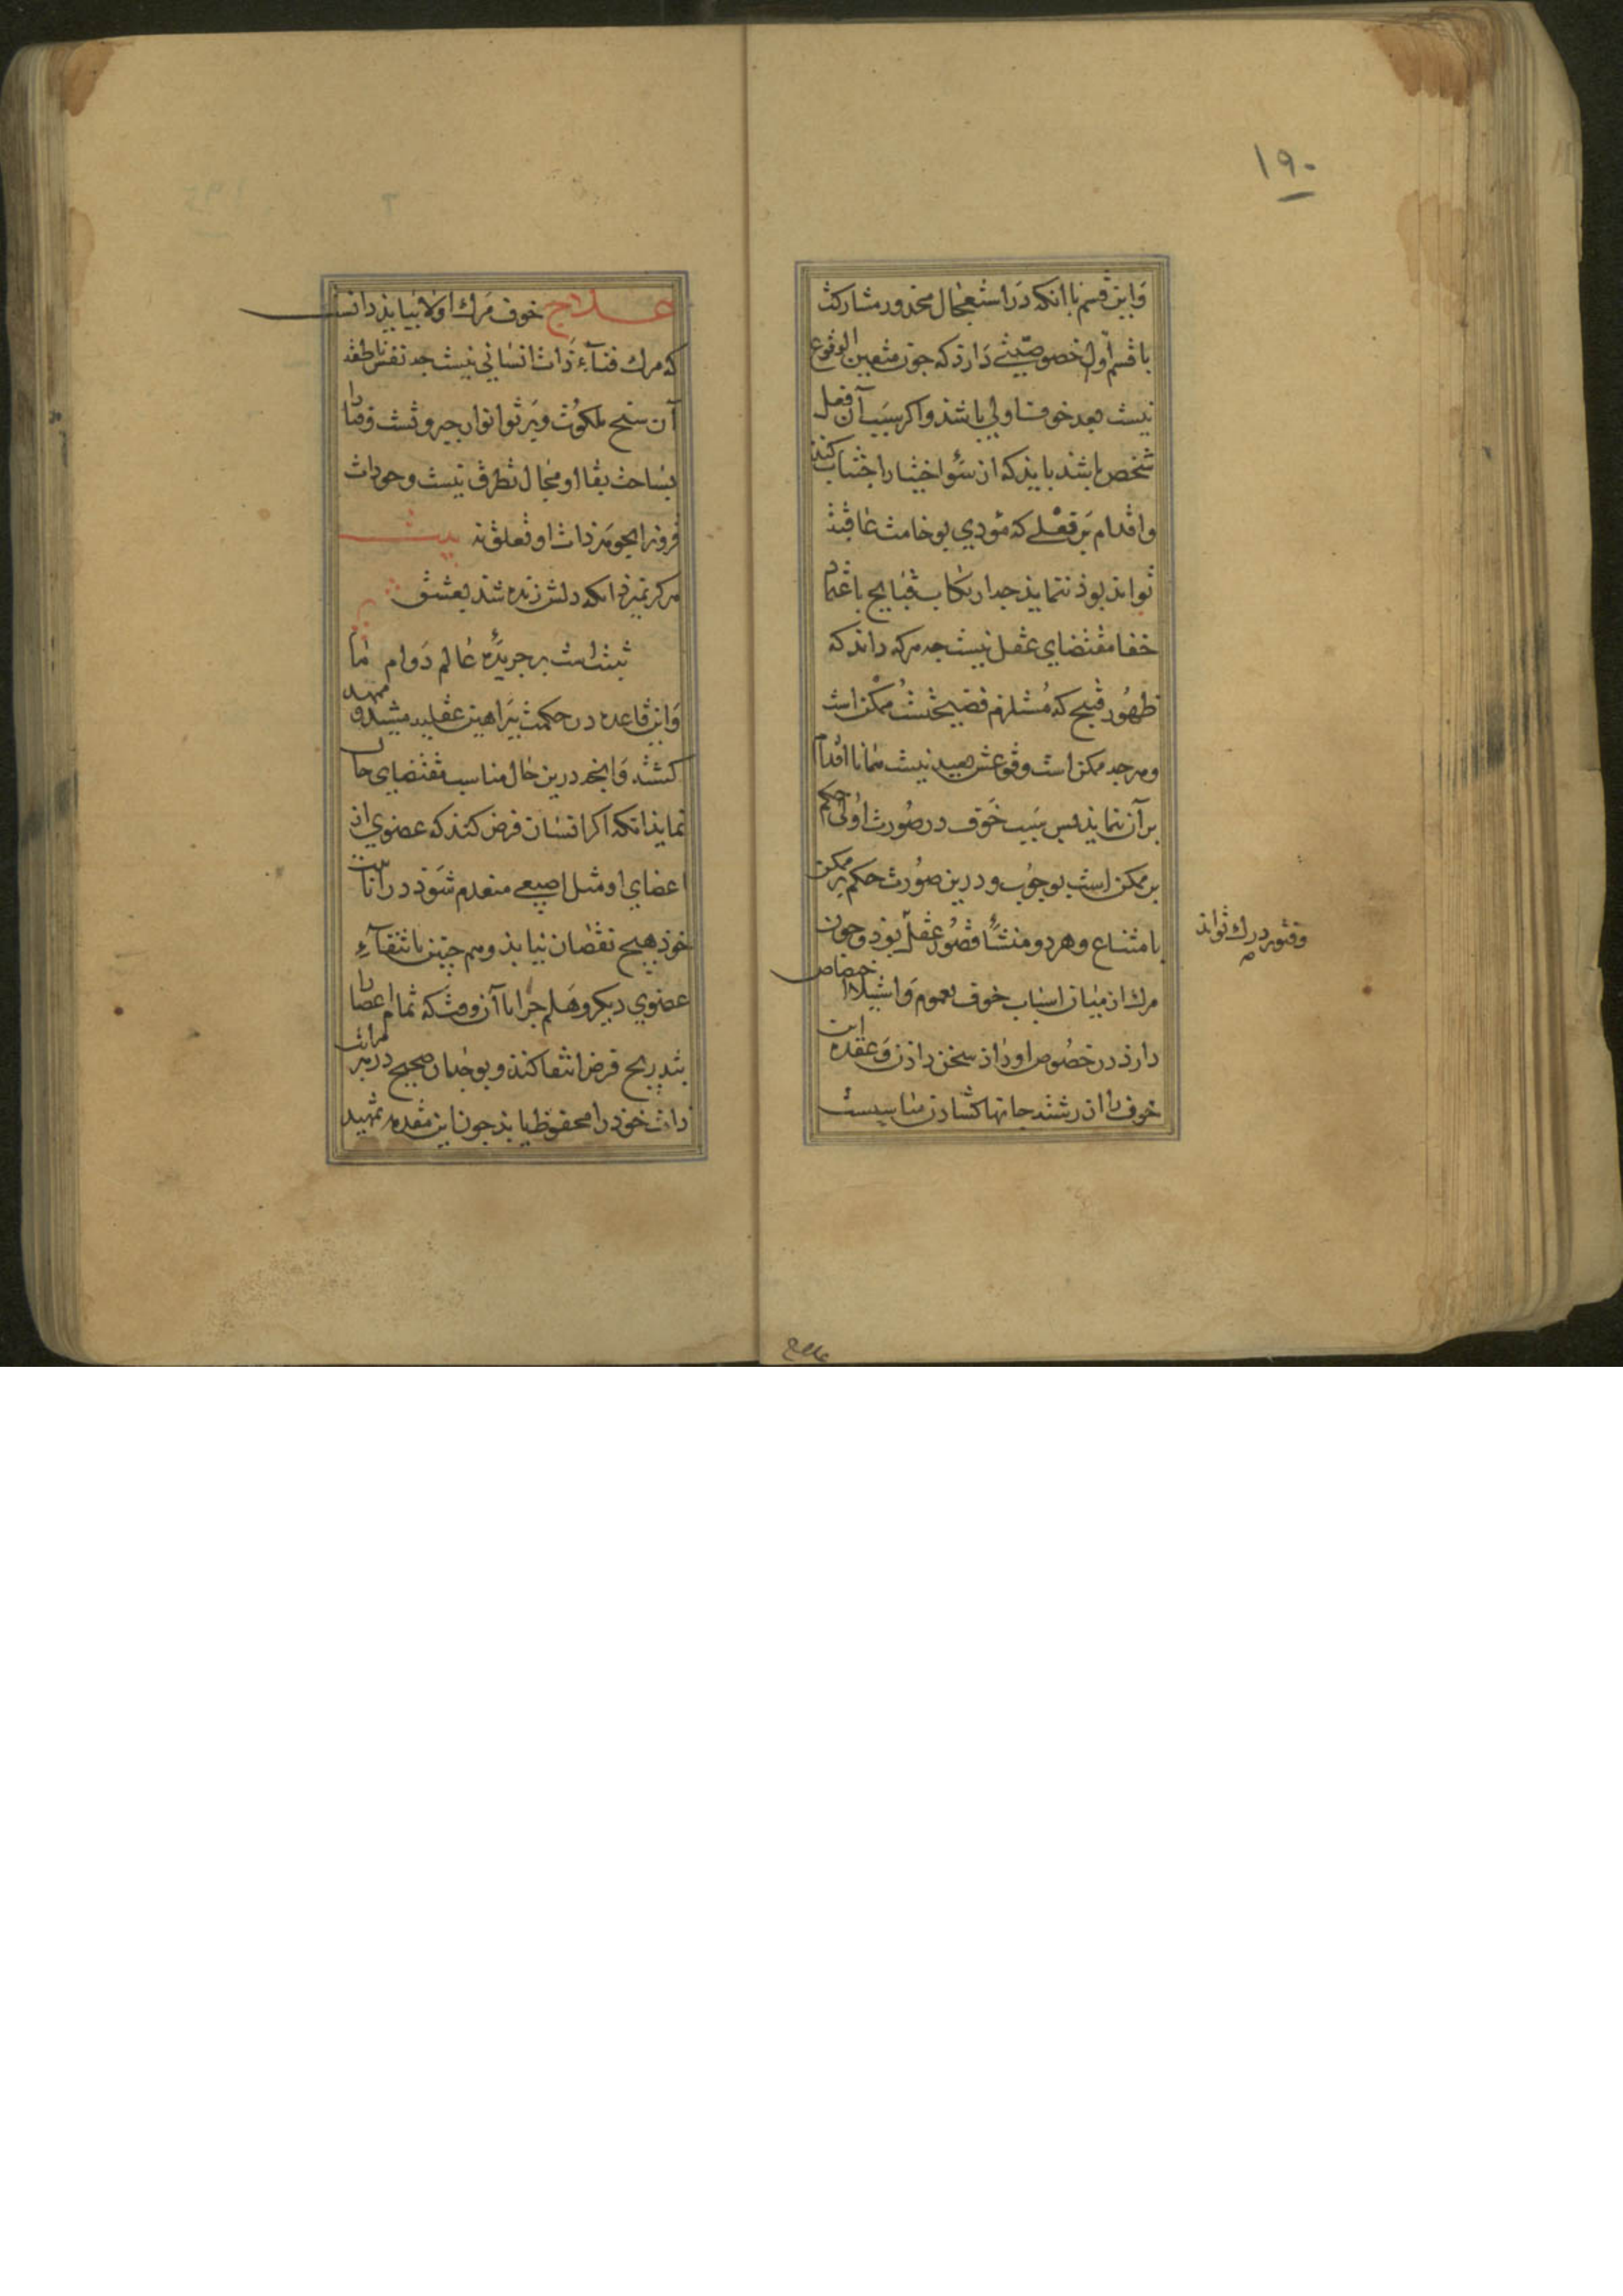 ١٩٠
وَاین قسم با آنکه دَر استعجال محذور مشارکت
با قسم اول خصوصیتی دَارذ که جون متعین الوقوع
نیست بعد خوف اولی باشذ واکر سبب آن فعل
شخص باشد بایذ که از سُوء اختیار اجتناب کند
واقدام بَر فعلی که مؤدی بوخامت عاقبت
تواند بوذ ننمایذ جه ارتکاب قبایح باعتماد
خفا مقتضای عقل نیست جه هرکه داند که
ظهُور قبیح که مُستلزم فضیحتست ممکن است
وهرجه ممکن است وقوعش بعید نیست همانا اقدام
بر آن ننمایذ بس سَبب خوف در صُورت اوُلی حکم
بر ممکن است بوجوب و در این صُورت حکم بر ممکن
بامتناع وهر دو منشأ قصُور عقل بوذ وجون
وفتور درك تواند
مرك از میان اسباب خوف بعموم وَاستیلا اختصاص
دارذ در خصُوص او داذ سخن داذن وَعقده این
خوف را از رشته جانها کشادن مناسبست
علاج
علاج خوف مَرك اولا میبایذ دانست
که مرك فناءِ ذات انسانی نیست جه نفس ناطقه
آن سنح ملکوت وپرتو انوار جبروتست وفنا را
بساحت بقا او مجال تطرق نیست وحوادث
فروز را بجوهر ذات او تعلق نه بیت
هرکز نمیرد آنکه دلش زنده شذ بعشق
ثبت است بر جریدۀ عالم دَوام ما
وَاین قاعده در حکمت ببَراهین عقلیه مشید وممهد
کشته وَانجه درین حال مناسب مقتضای حال
نمایذ آنکه اکر انسان فرض کنذ که عضوی از
اعضای او مثل اصبعی منعدم شوَذ در انانیت
خوذ هیج نقصان نیابذ وهم جنین بانتفاءِ
عضوی دیکر وهَلم جرا تا آن وقت که تمام اعضا را
بتدریج فرض انتفا کنذ وبوجدان صحیح در هر مراتب
ذات خوذ را محفوظ یابذ جون این مقدمه تمهید